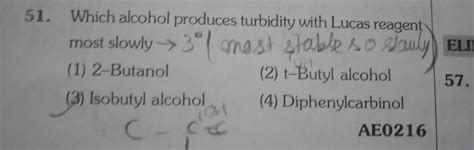 51. Which alcohol produces turbidity with Lucas reagent
most slowly → 3° (most stable so slowly) ELI
(1) 2–Butanol (2) t–Butyl alcohol 57.
OH
(3) Isobutyl alcohol (4) Diphenylcarbinol
OH
C – C = C AE0216